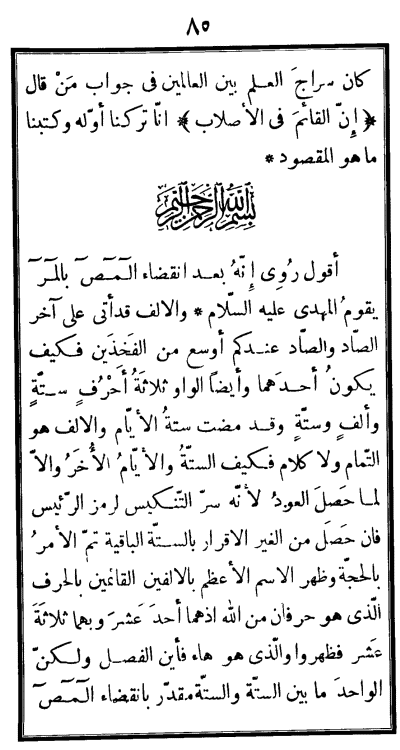 ٨٥
كان سراجَ العلم بين العالمين فى جواب مَنْ قال
﴿ إِنّ القائمَ فى الأصلاب ﴾ انّا تركنا أوّله وكتبنا
ما هو المقصود *
بسم الله الرحمن الرحيم
أقول رُوِى إِنّهُ بعد انقضاء الٓمٓصٓ بالٓمٓرٓ
يقومُ المهدى عليه السّلام * والالف قد أتى على آخر
الصّاد والصّاد عندكم أوسع من الفَخَذَين فكيف
يكونُ أحدَهما وأيضًا الواو ثلاثَةُ أَحْرُفٍ ستّةٍ
وألفٍ وستّةٍ وقد مضت ستةُ الأيّام والالف هو
التّمام ولا كلام فكيف الستّةُ والأيّامُ الأُخَرُ والاّ
لما حَصَلَ العودُ لأنّه سرّ التّنكيس لرمز الرّئيس
فان حَصَلَ من الغير الاقرار بالستّة الباقية تمّ الأمرُ
بالحجّة وظهر الاسم الأعظم بالالفين القائمين بالحرف
الّذى هو حرفان من الله اذهما أحدَ عشرَ وبهما ثلاثةَ
عَشر فظهر واو الّذى هو هاء فأين الفصل ولكنّ
الواحدَ ما بين الستّة والستّة مقدّر بانقضاء الٓمٓصٓ